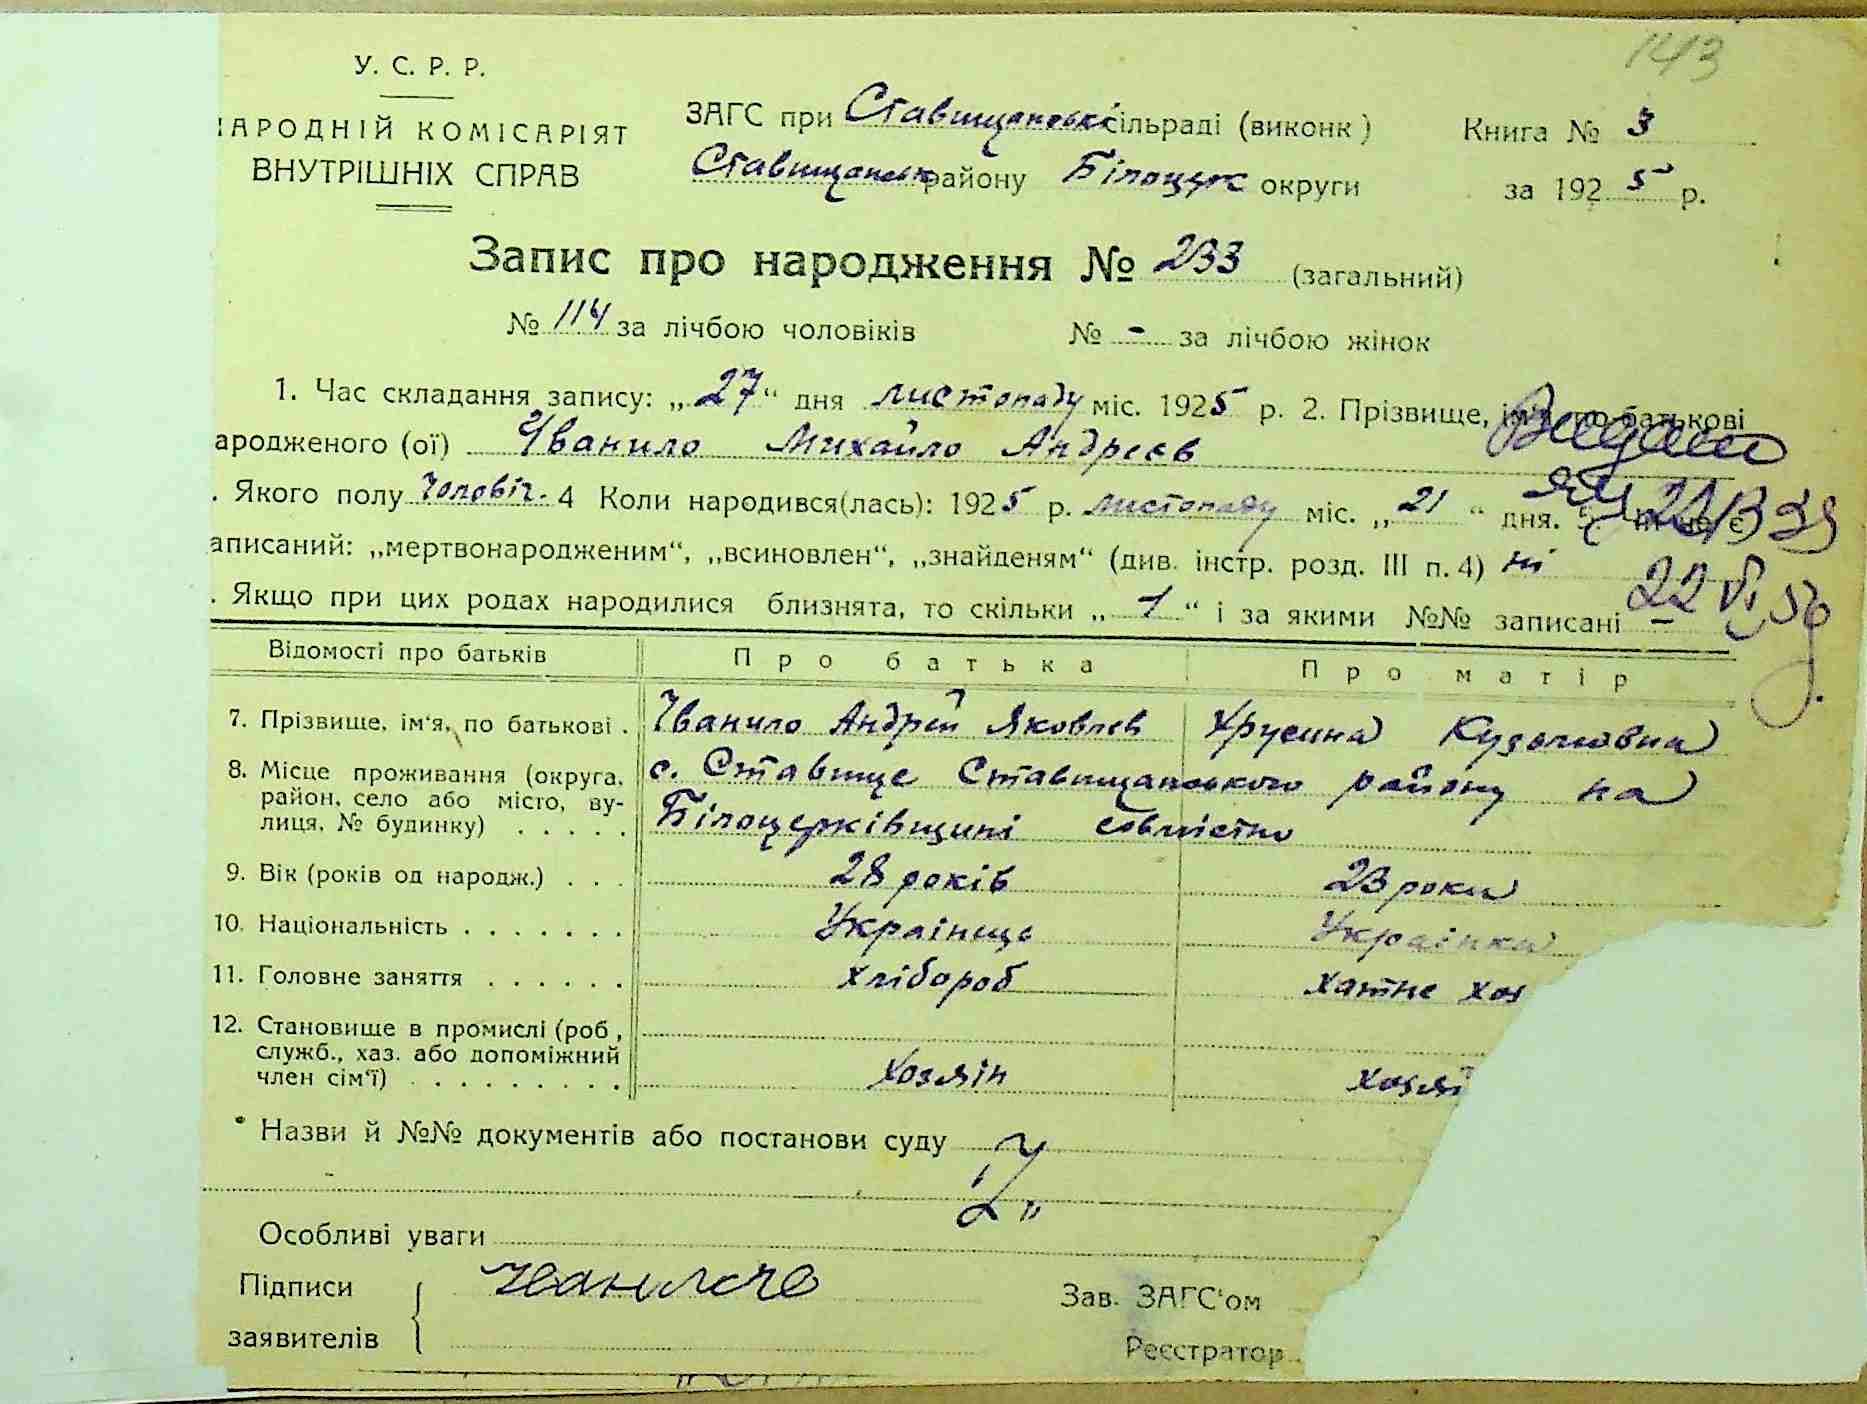 143
У. С. Р. Р.
НАРОДНІЙ КОМІСАРІЯТ
ВНУТРІШНІХ СПРАВ
ЗАГС при Ставищанськ сільраді (виконк)
Ставищанськ району Білоцерк округи
Книга № 3
за 1925 р.
Запис про народження № 233 (загальний)
№ 114 за лічбою чоловіків № - за лічбою жінок
1. Час складання запису: „27“ дня листопаду міс. 1925 р. 2. Прізвище, ім'я, по батькові
ародженого (ої) Іванило Михайло Андреєв
. Якого полу чоловіч. 4 Коли народився(лась): 1925 р. листопаду міс. „21“ дня. 5. Чи не є
аписаний: „мертвонародженим“, „всиновлен“, „знайденям“ (див. інстр. розд. III п. 4) ні
. Якщо при цих родах народилися близнята, то скільки „1“ і за якими №№ записані -
Відомості про батьків Про батька Про матір
7. Прізвище, ім'я, по батькові . Іванило Андрій Яковлев Хрусина Кузьмовна
8. Місце проживання (округа, с. Ставище Ставищанського району на
район, село або місто, ву-
лиця, № будинку) . . . . . Білоцерківщині совмістно
9. Вік (років од народж.) . . . 28 років 23 роки
10. Національність . . . . . . . Українець Українка
11. Головне заняття . . . . . . хлібороб хатнє хоз
12. Становище в промислі (роб.,
служб., хаз. або допоміжний
член сім'ї) . . . . . . . . . хозяін хозяї
Назви й №№ документів або постанови суду
Особливі уваги
Підписи
заявителів
Зав. ЗАГС'ом
Реєстратор